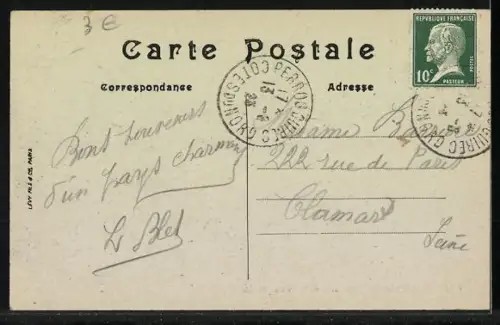 3 €
Carte Postale
REPUBLIQUE FRANÇAISE
10c
POSTES
PASTEUR
Correspondance
Adresse
PERROS-GUIREC COTES DU NORD
17
13 - 4
23
Bons souvenirs
d'un pays charmant
L Blet
Madame
222 rue de Paris
Clamart
Seine
LEVY FILS & CIE, PARIS